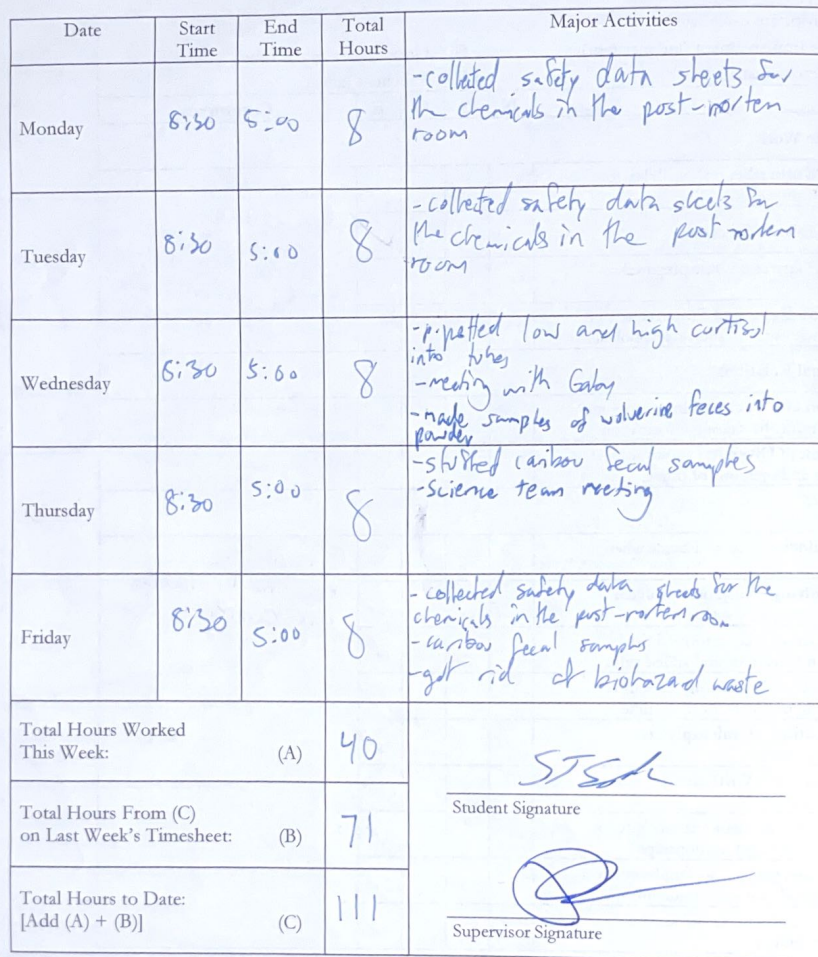 Date
Start
Time
End
Time
Total
Hours
Major Activities
Monday
8:30
5:00
8
- collected safety data sheets for
the chemicals in the post-mortem
room
Tuesday
8:30
5:00
8
- collected safety data sheets for
the chemicals in the post mortem
room
Wednesday
8:30
5:00
8
- pipetted low and high cortisol
into tubes
- meeting with Gaby
- made samples of wolverine feces into
powder
Thursday
8:30
5:00
8
- caribou fecal samples
- Science team meeting
Friday
8:30
5:00
8
- collected safety data sheets for the
chemicals in the post-mortem room
- caribou fecal samples
- got rid of biohazard waste
Total Hours Worked
This Week: (A)
40
Total Hours From (C)
on Last Week's Timesheet: (B)
71
Total Hours to Date:
[Add (A) + (B)] (C)
111
Student Signature
Supervisor Signature